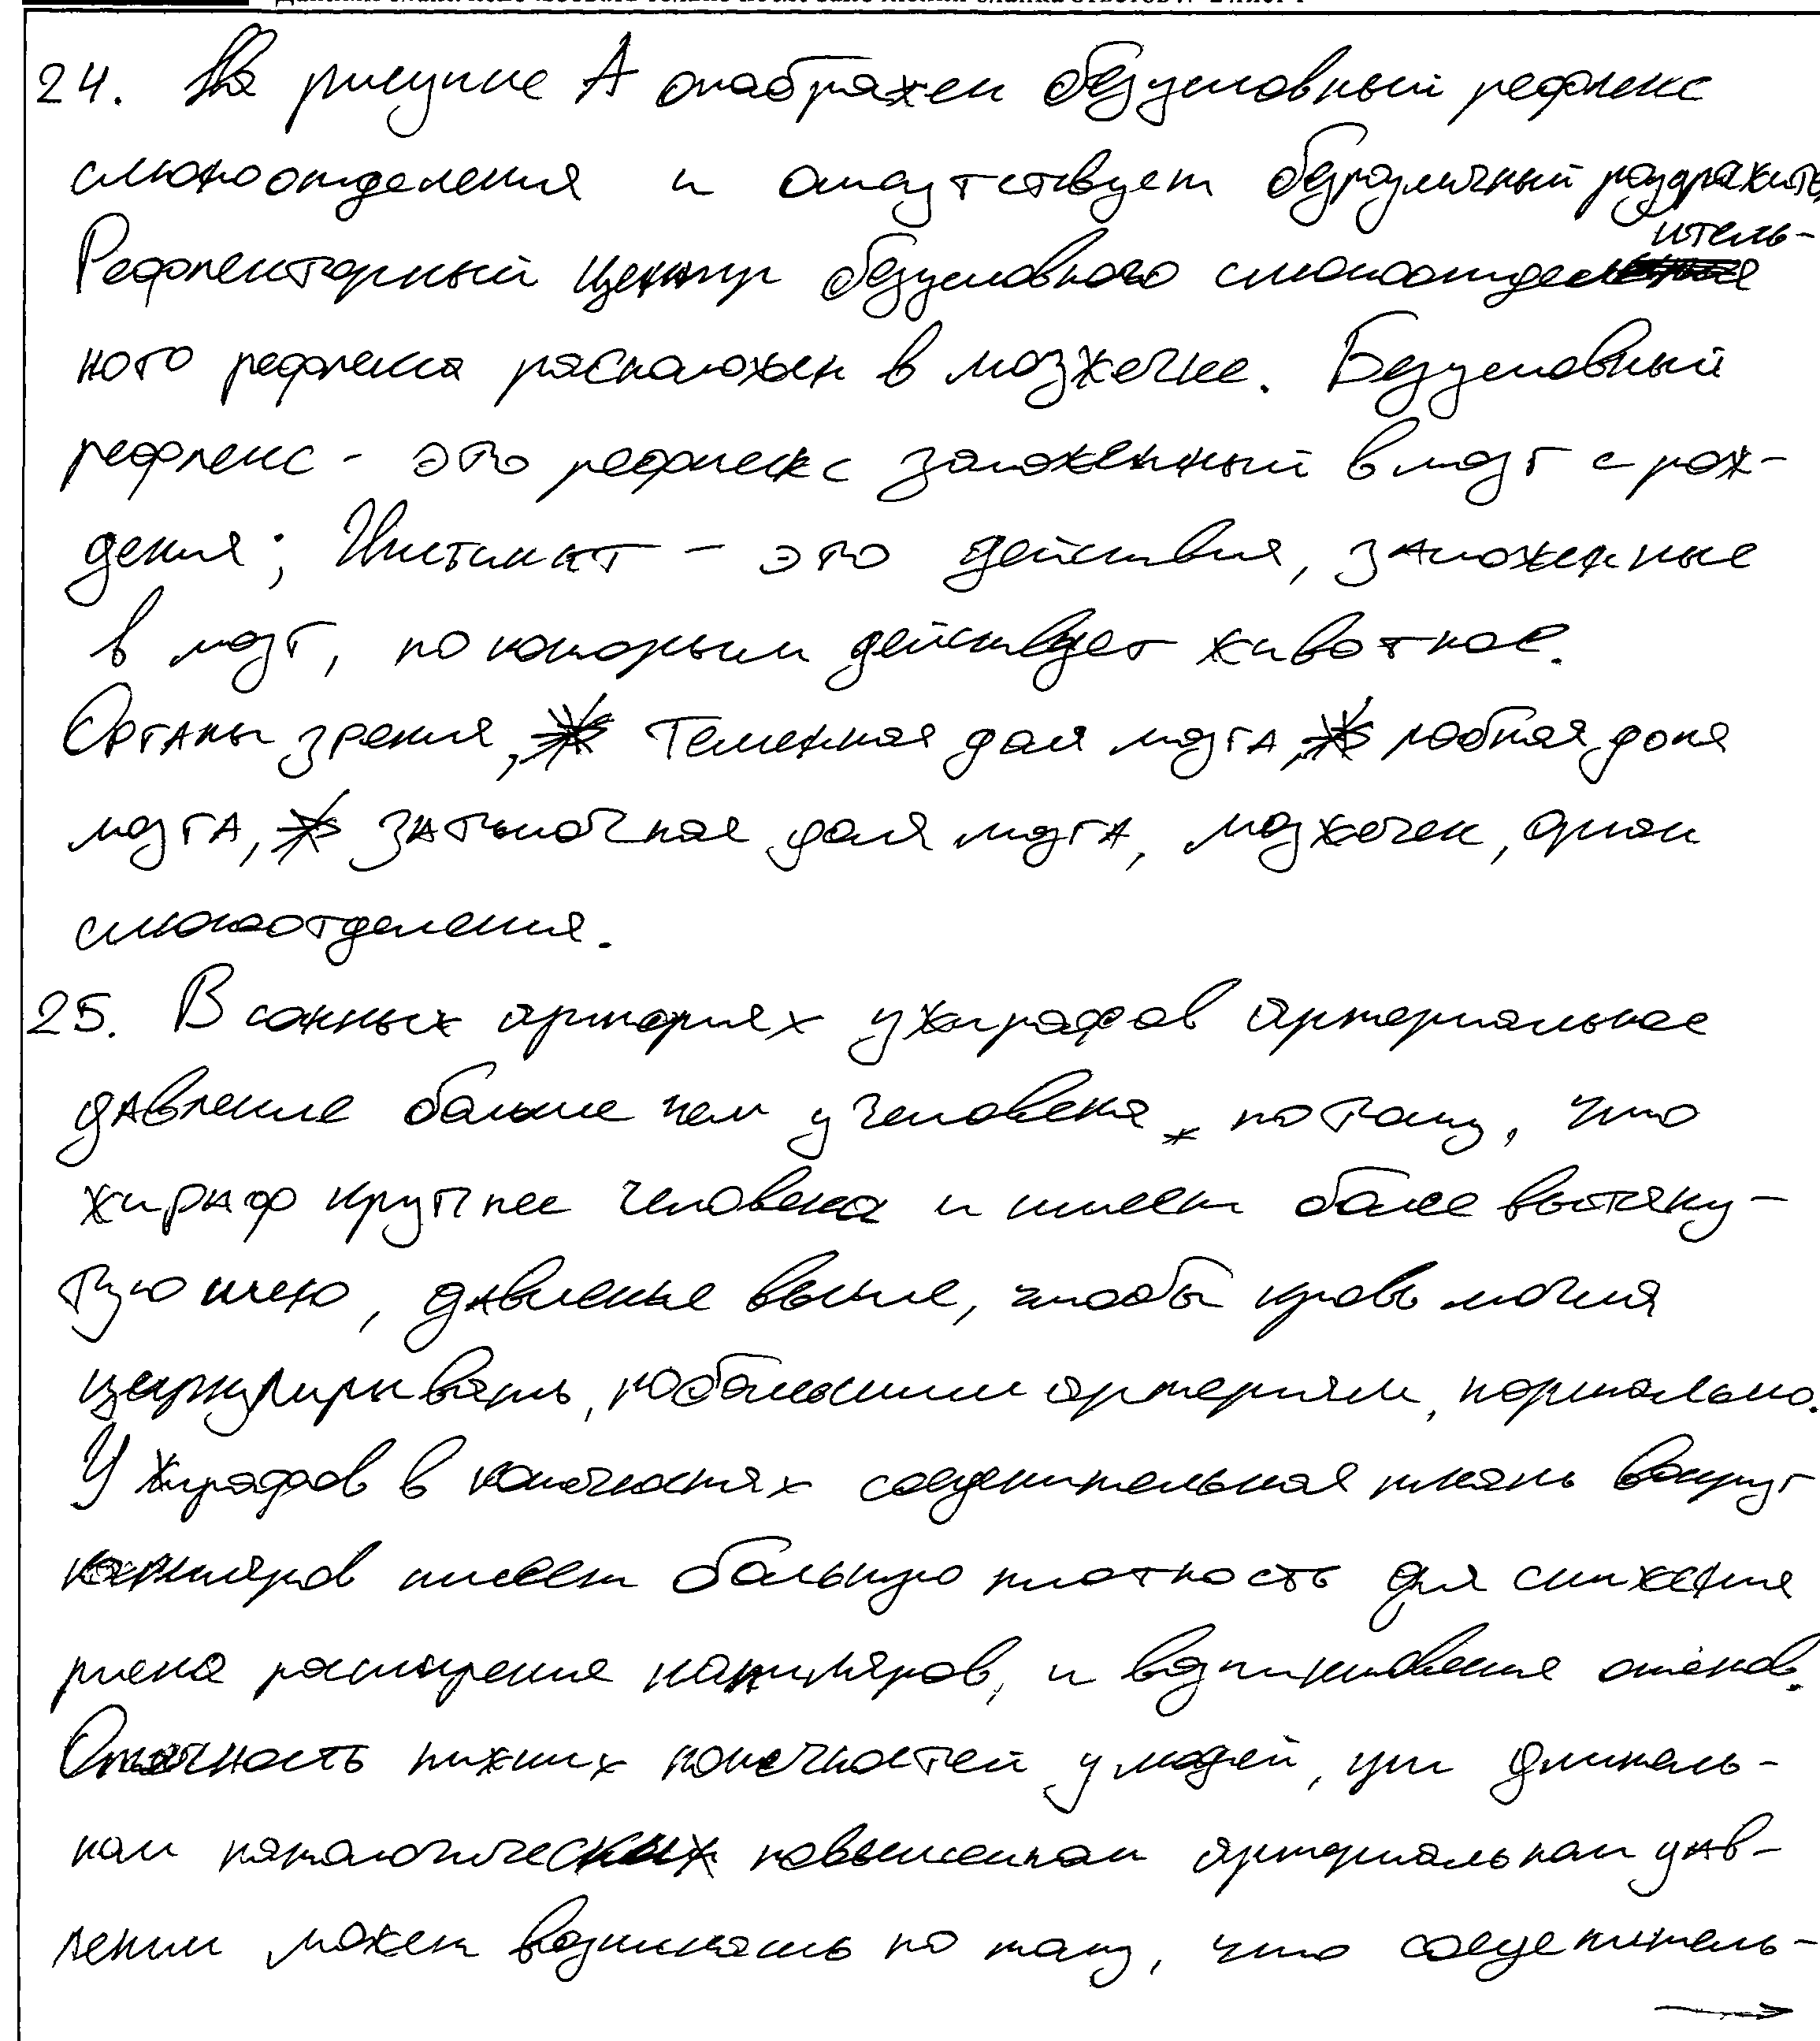 24. На рисунке А отображен безусловный рефлекс
слюноотделения и отсутствует безразличный раздражитель
Рефлекторный центр безусловного слюноотделитель-
ного рефлекса расположен в мозжечке. Безусловный
рефлекс - это рефлекс заложенный в мозг с рож-
дения; Инстинкт - это действия, заложенные
в мозг, по которым действует животное.
Органы зрения, теменная доля мозга, лобная доля
мозга, затылочная доля мозга, мозжечек, орган
слюноотделения.
25. В сонных артериях у жирафов артериальное
давление больше чем у человека потому, что
жираф крупнее человека и имеет более вытяну-
тую шею, давление выше, чтобы кровь могла
циркулировать, по большим артериям, нормально.
У жирафов в конечностях соединительная ткань вокруг
капиляров имеет большую плотность для снижения
риска расширения капиляров, и возникновения отёков.
Отёчность нижних конечностей у людей, при длитель-
ном патологическом повышенном артериальном дав-
лении может возникать по тому, что соединитель-